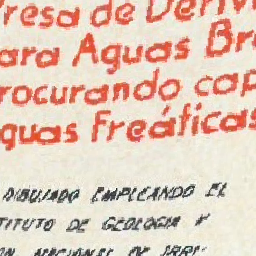 resa de Deriv
ara Aguas Br
rocurando cap
guas Freáticas
DIBUJADO EMPLEANDO EL
TITUTO DE GEOLOGIA Y
ON NACIONAL DE IRRI-